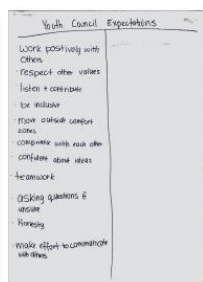 Youth Council Expectations
- Work positively with
Others
- respect other values
listen + contribute
- be inclusive
- move outside comfort
zones
- compromise with each other
- confident about ideas
- teamwork
- asking questions if
unsure
- Honesty
- make effort to communicate
with others